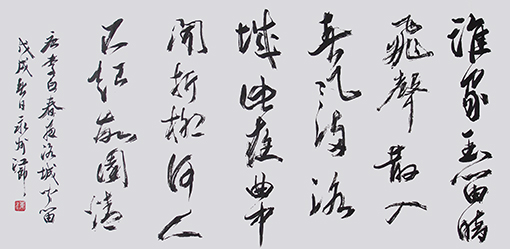 誰家玉笛暗
飛聲散入
春風滿洛
城此夜曲中
聞折柳何人
不起故園情
唐李白春夜洛城聞笛
戊戌春日永州